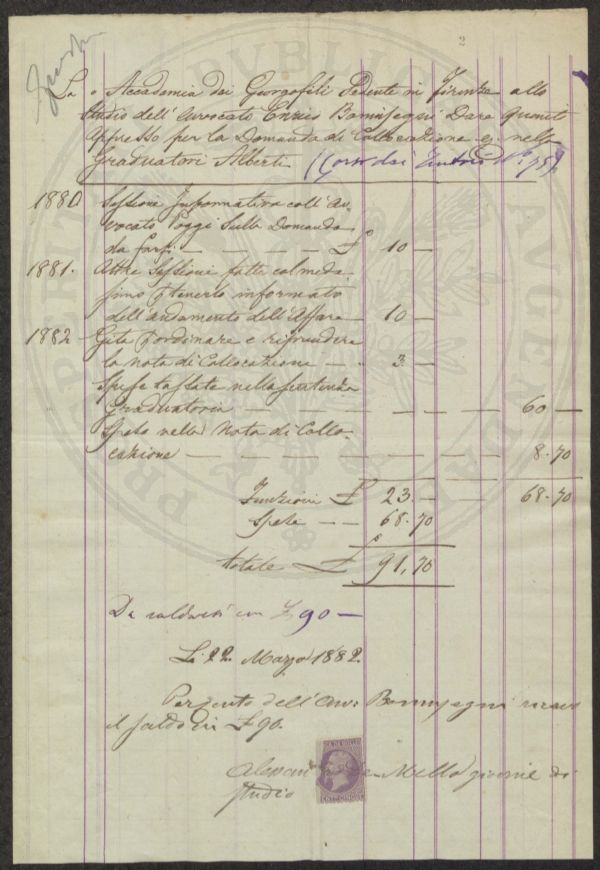 2
La R. Accademia dei Georgofili Sedente in Firenze allo
Studio dell'Avvocato Ennio Bonnisegni Dare Quanto
Appresso per la Domanda di Collocazione nella
Graduatori Alberti
1880 Sessione Informativa coll'Av-
vocato Poggi Sulla Domanda
da farsi — — — — £ 10 —
1881. Altre Sessioni fatte col mede-
simo tenerlo informato
dell'andamento dell'Affare — 10 —
1882 Gita ordinare e riprendere
la nota di Collocazione — 3 —
Spese tassate nella sentenza
Graduatoria — — — — — — — 60 —
Spese nella Nota di Collo-
cazione — — — — — — — 8.70
Funzioni £ 23. — — 68.70
Spese — — 68.70
Totale £ 91,70
Da saldarsi con £ 90 —
Li 22 Marzo 1882.
Per conto dell'Avv: Bonnisegni
il saldo di £ 90.
Mello giovine di
studio
PROSPERITATI PUBLICAE AUGENDAE